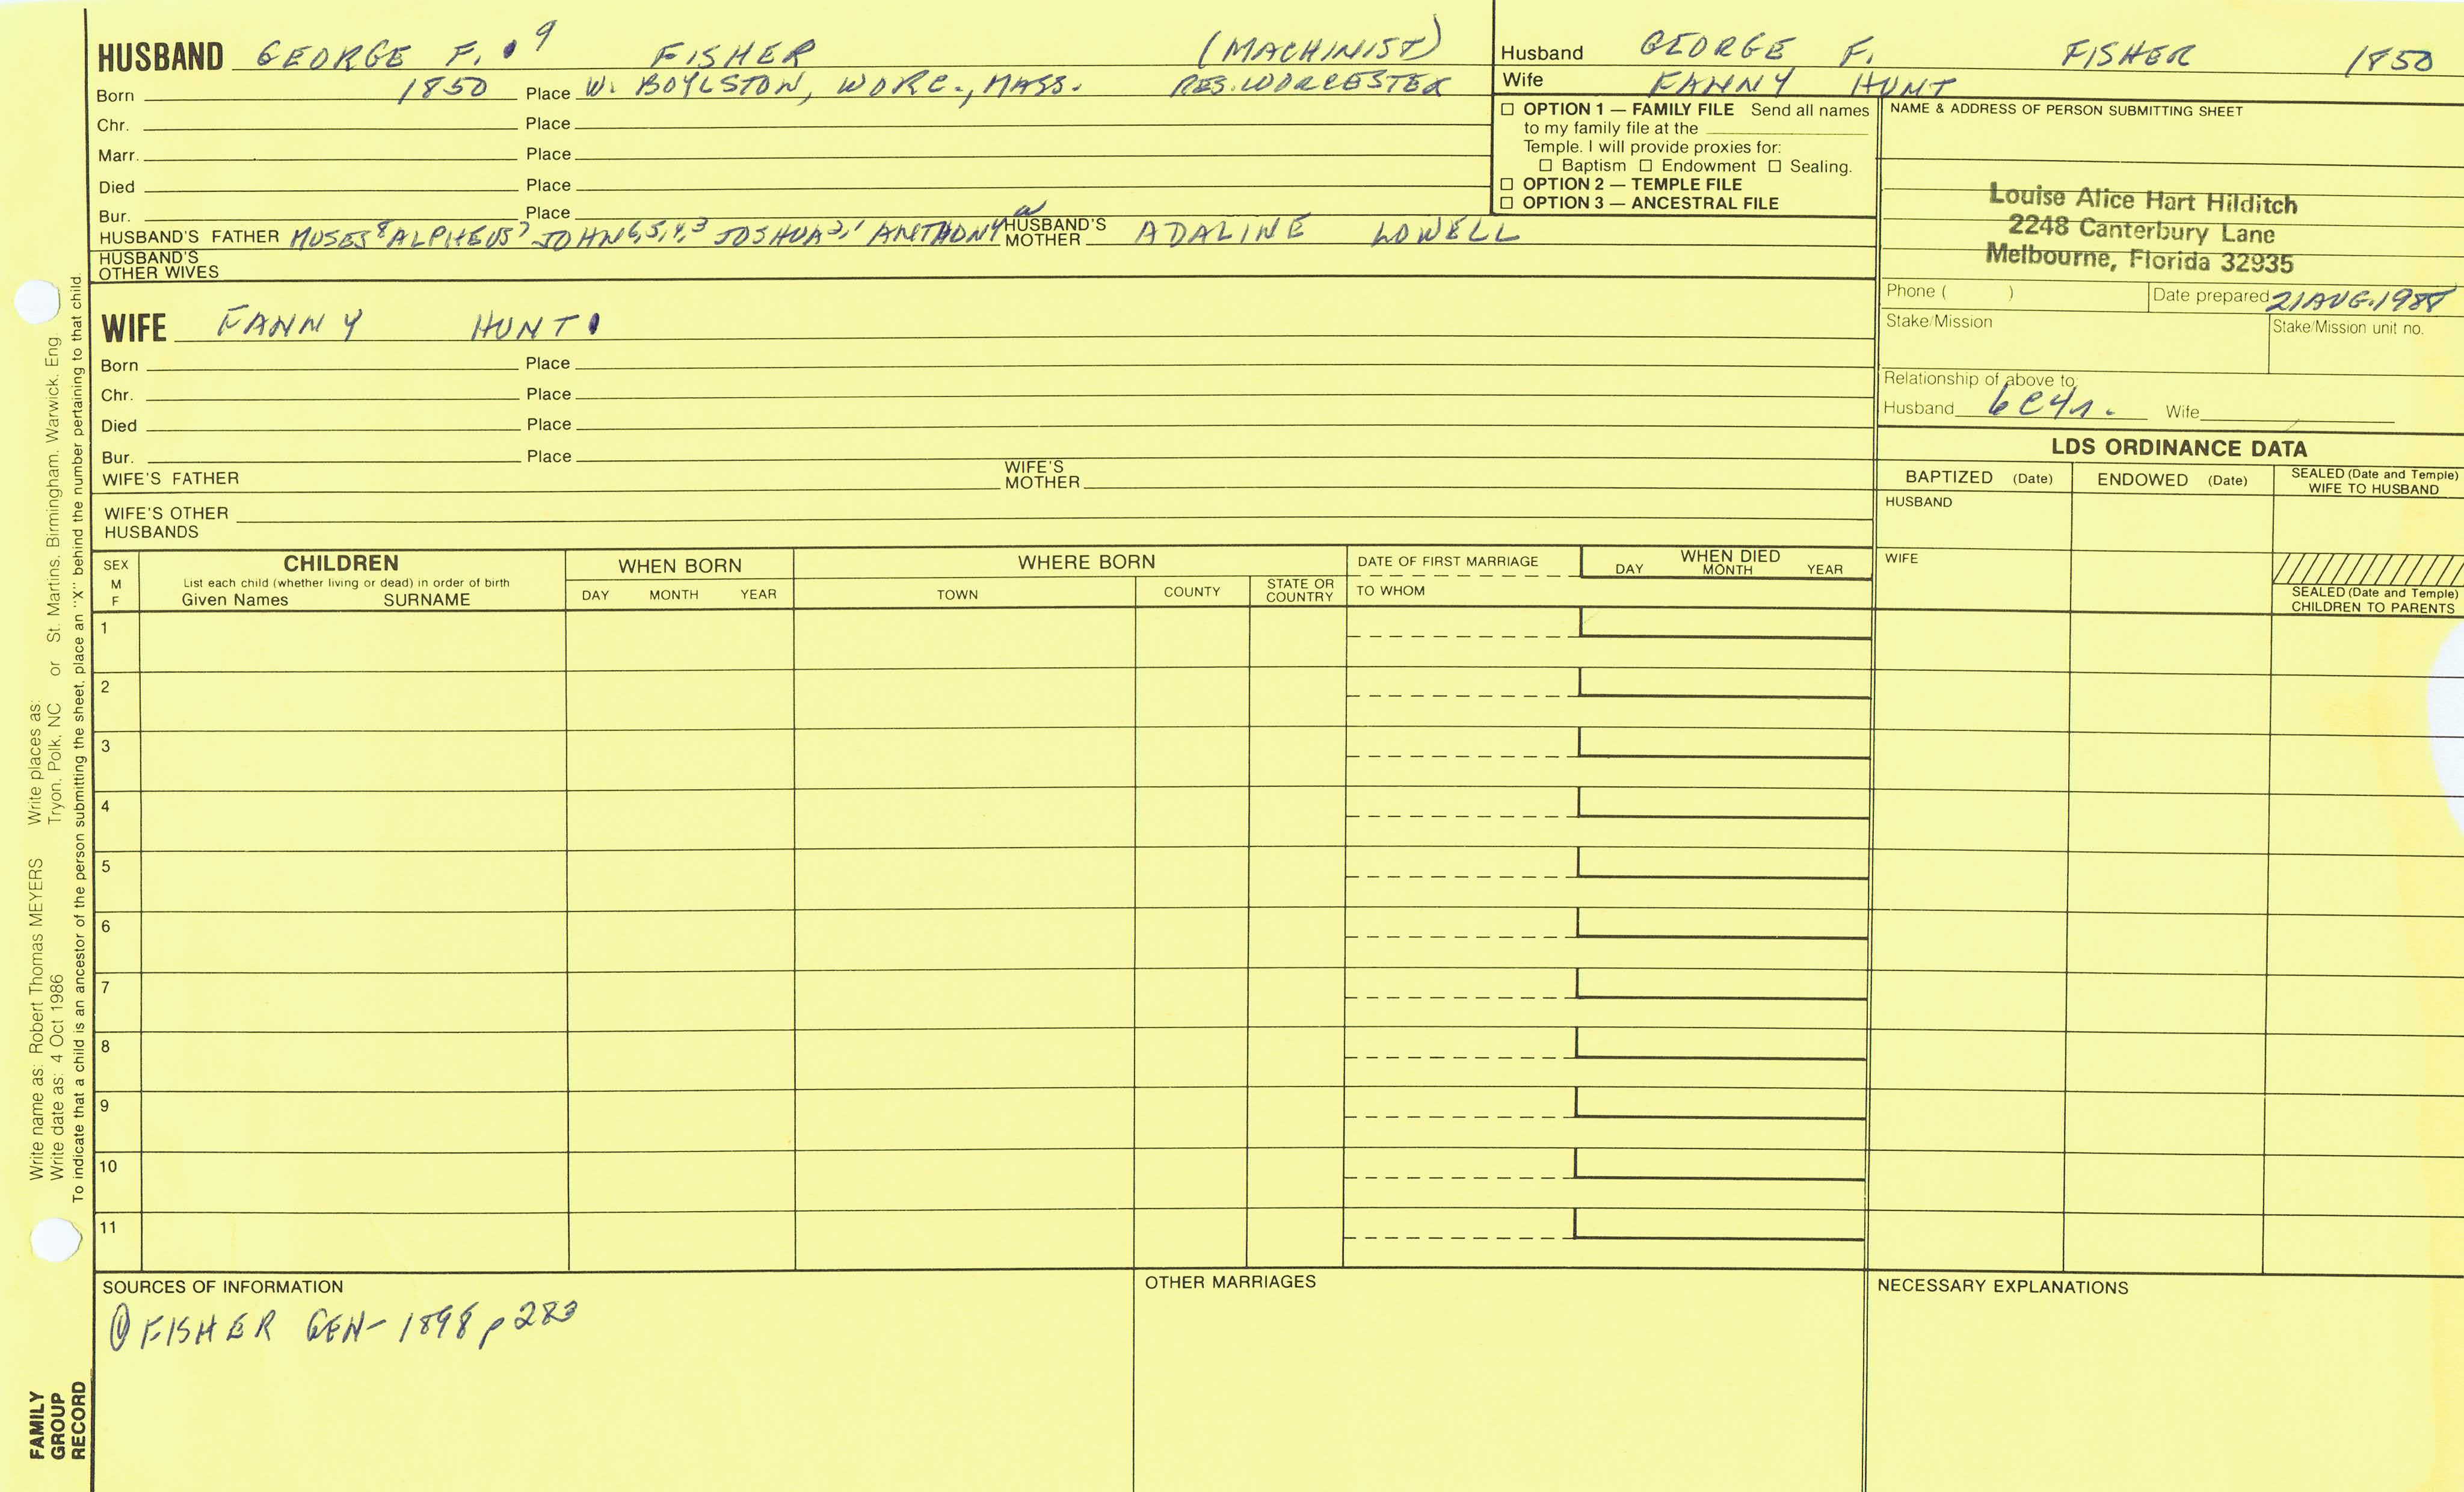 HUSBAND GEORGE F. 9 FISHER (MACHINIST)
Born 1850 Place W. BOYLSTON, WORC., MASS. RES. WORCESTER
Chr. Place
Marr. Place
Died Place
Bur. Place
HUSBAND'S FATHER MOSES8 ALPHEUS7 JOHN6,5,4,3 JOSHUA2,1 ANTHONY HUSBAND'S MOTHER ADALINE LOWELL
HUSBAND'S OTHER WIVES
Husband GEORGE F. FISHER 1850
Wife FANNY HUNT
☐ OPTION 1 — FAMILY FILE Send all names
to my family file at the
Temple. I will provide proxies for:
☐ Baptism ☐ Endowment ☐ Sealing.
☐ OPTION 2 — TEMPLE FILE
☐ OPTION 3 — ANCESTRAL FILE
NAME & ADDRESS OF PERSON SUBMITTING SHEET
Louise Alice Hart Hilditch
2248 Canterbury Lane
Melbourne, Florida 32935
Phone ( ) Date prepared 21 AUG. 1988
Stake/Mission Stake/Mission unit no.
Relationship of above to:
Husband 6C4R. Wife
WIFE FANNY HUNT
Born Place
Chr. Place
Died Place
Bur. Place
WIFE'S FATHER WIFE'S MOTHER
WIFE'S OTHER HUSBANDS
LDS ORDINANCE DATA
BAPTIZED (Date) ENDOWED (Date) SEALED (Date and Temple) WIFE TO HUSBAND
HUSBAND
WIFE
SEALED (Date and Temple) CHILDREN TO PARENTS
SEX M F
CHILDREN
List each child (whether living or dead) in order of birth
Given Names SURNAME
WHEN BORN
DAY MONTH YEAR
WHERE BORN
TOWN COUNTY STATE OR COUNTRY
DATE OF FIRST MARRIAGE
TO WHOM
WHEN DIED
DAY MONTH YEAR
1
2
3
4
5
6
7
8
9
10
11
SOURCES OF INFORMATION
① FISHER GEN- 1898 p 283
OTHER MARRIAGES
NECESSARY EXPLANATIONS
Write name as: Robert Thomas MEYERS Write places as:
Write date as: 4 Oct 1986 Tryon, Polk, NC or St. Martins, Birmingham, Warwick, Eng.
To indicate that a child is an ancestor of the person submitting the sheet, place an "X" behind the number pertaining to that child.
FAMILY
GROUP
RECORD